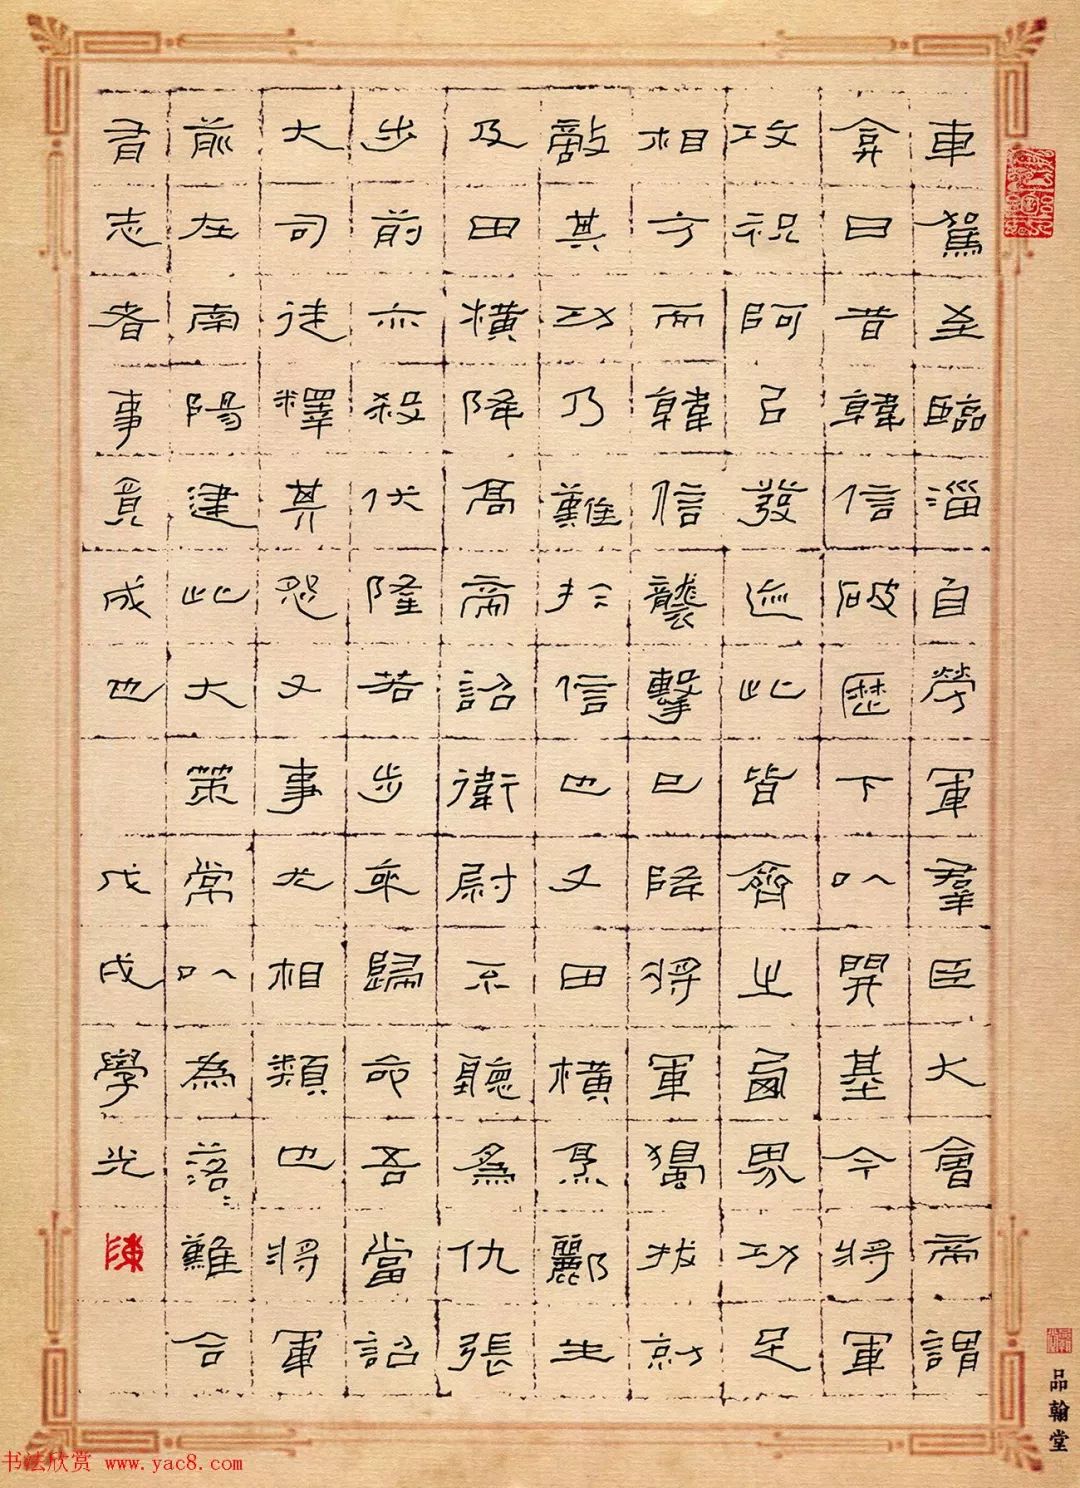 車駕至臨淄自勞軍羣臣大會帝謂
弇曰昔韓信破歷下以開基今將軍
攻祝阿㠯發迹此皆齊之西界功足
相方而韓信襲擊已降將軍獨拔勍
敵其功乃難於信也又田橫烹酈生
及田橫降高帝詔衛尉不聽為仇張
步前亦殺伏隆若步來歸命吾當詔
大司徒釋其怨又事尤相類也將軍
前在南陽建此大策常以為落〻難合
有志者事竟成也 戊戌學光
陳
品翰堂
书法欣赏 www.yac8.com